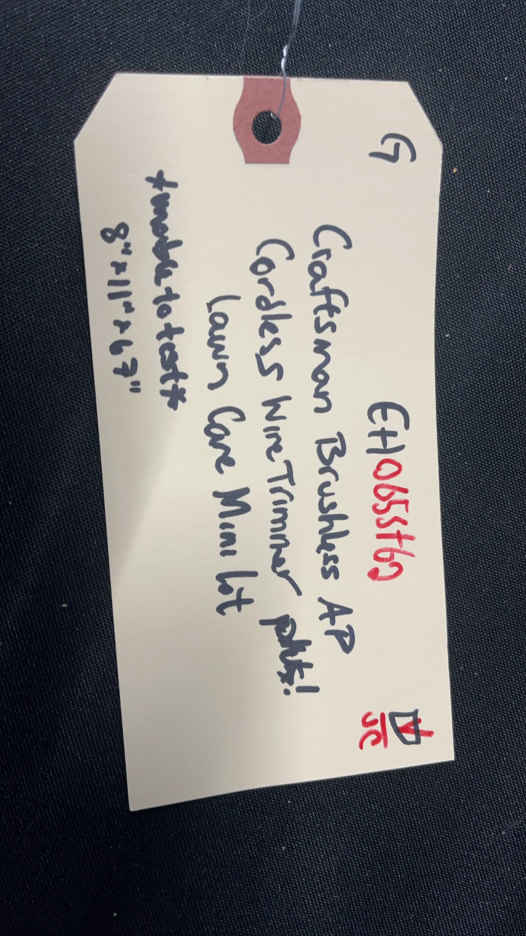 G
EH065St69
JC
Craftsman Brushless AP
Cordless Wire Trimmer plus!
Lawn Care Mini Lot
*unable to test*
8"x11"x67"